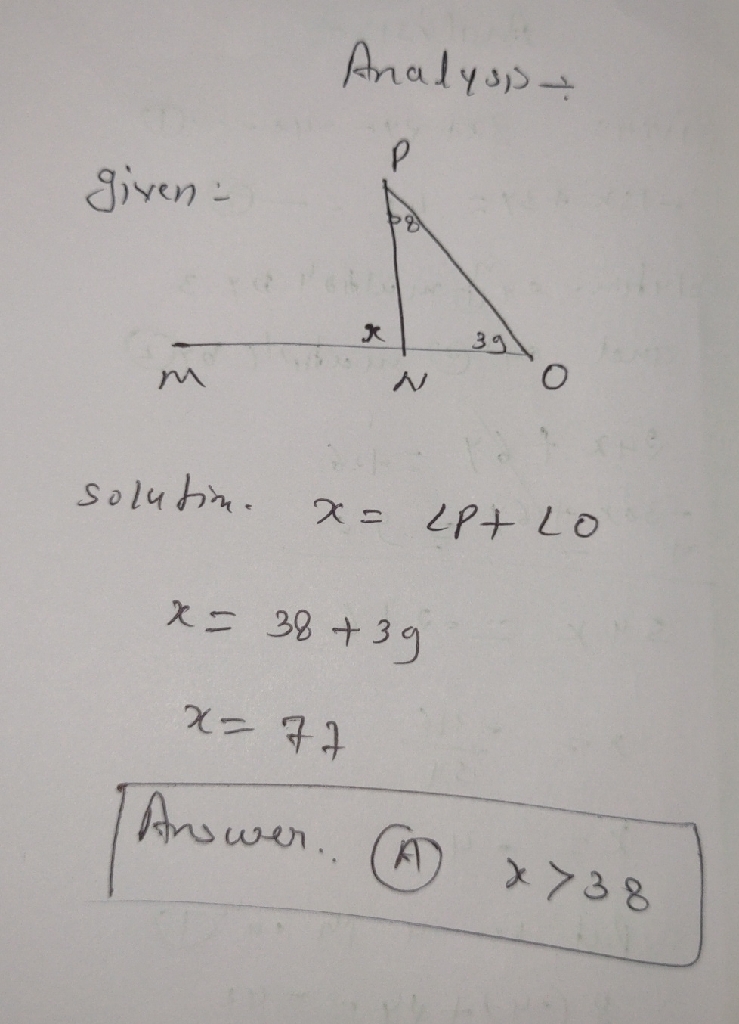 Analysis ÷
given :
P
38
x 39
M N O
solution. x = ∠P + ∠O
x = 38 + 39
x = 77
Answer.. (A) x > 38